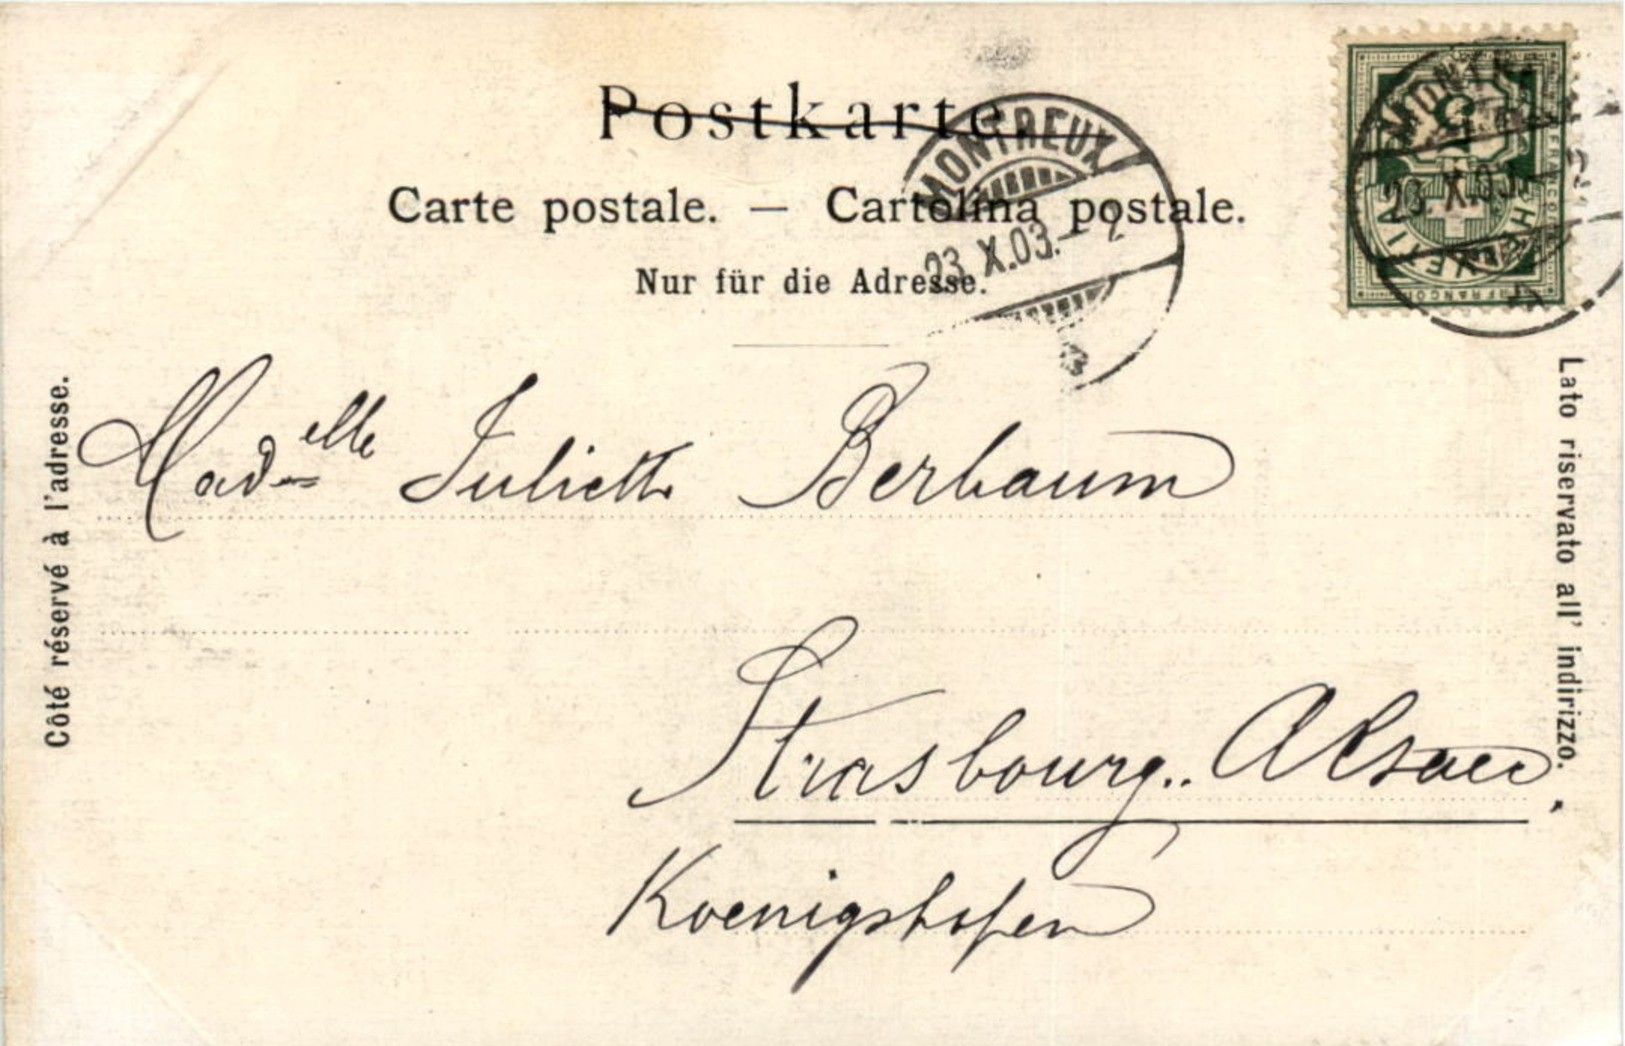 Postkarte.
Carte postale. — Cartolina postale.
Nur für die Adresse.
MONTREUX
23.X.03.-2
23.X.03.
5
HELVETIA
FRANCO
Côté réservé à l'adresse.
Lato riservato all' indirizzo.
Madelle Juliette Berbaum
Strasbourg.. Alsace,
Koenigshofen